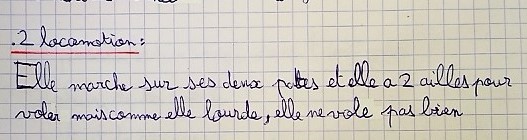 .2 locamotion:
Elle marche sur ses deux pattes et elle a 2 ailles pour
voler mais comme elle lourde, elle ne vole pas bien